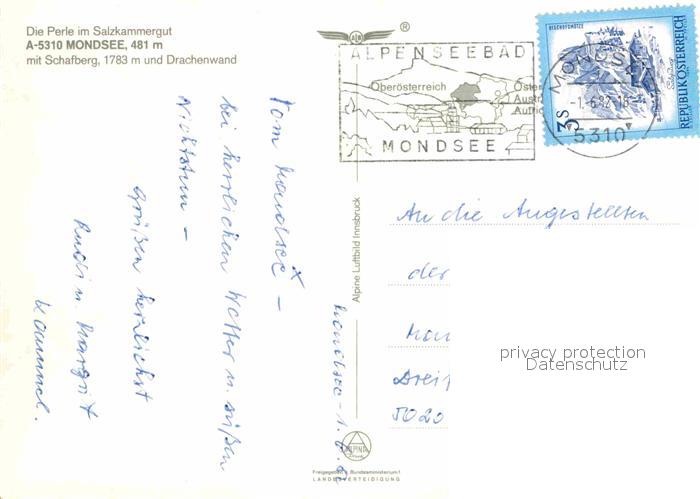 Die Perle im Salzkammergut
A-5310 MONDSEE, 481 m
mit Schafberg, 1783 m und Drachenwand
®
ALPENSEEBAD
Oberösterreich
MONDSEE
BISCHOFSMÜTZE
REPUBLIK ÖSTERREICH
3 S
MONDSEE
-1.-6.82-18
5310
Vom Mondsee -
bei herrlichen Wetter u. süßen
Nichtstun -
Grüßen herzlichst
Rudi u. Margrit
Mondsee - 1.6.
Alpine Luftbild Innsbruck
An die Angestellten
der
Mon
Drei
5020
privacy protection
Datenschutz
ALPINE
Freigegeben v. Bundesministerium f.
LANDESVERTEIDIGUNG